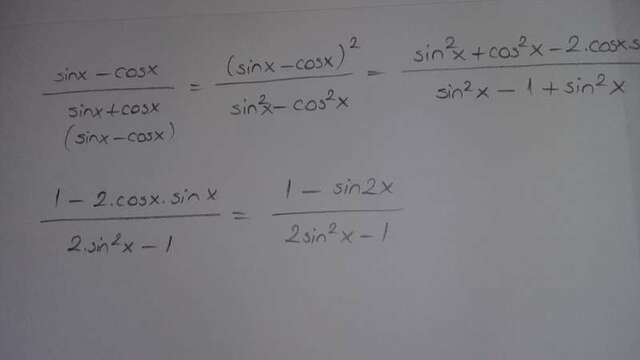 (sinx - cosx) / (sinx + cosx) (sinx - cosx) = (sinx - cosx)² / (sin²x - cos²x) = (sin²x + cos²x - 2.cosx.s) / (sin²x - 1 + sin²x)
(1 - 2.cosx.sinx) / (2.sin²x - 1) = (1 - sin2x) / (2sin²x - 1)